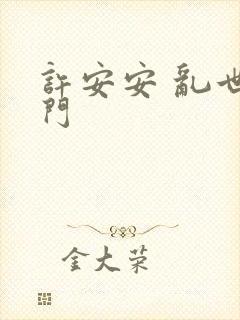 許安安 亂世
門
金大荣